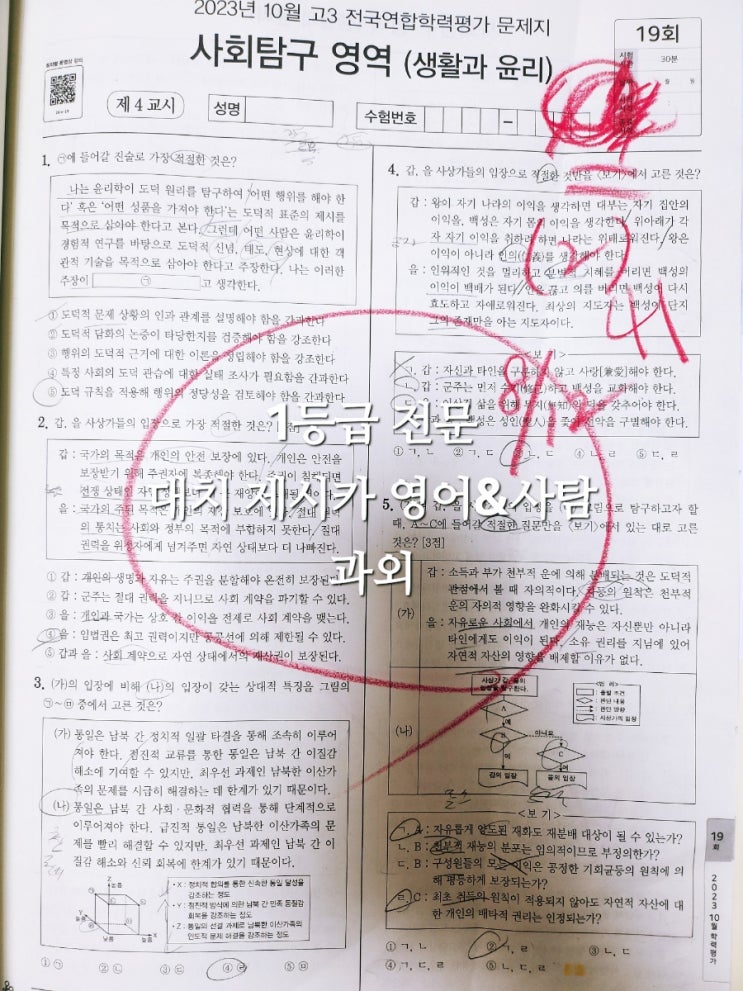 2023년 10월 고3 전국연합학력평가 문제지
사회탐구 영역 (생활과 윤리)
19회
시험 시간 30분
제 4 교시
성명
수험번호
1. ㉠에 들어갈 진술로 가장 적절한 것은?
나는 윤리학이 도덕 원리를 탐구하여 '어떤 행위를 해야 한
다' 혹은 '어떤 성품을 가져야 한다'는 도덕적 표준의 제시를
목적으로 삼아야 한다고 본다. 그런데 어떤 사람은 윤리학이
경험적 연구를 바탕으로 도덕적 신념, 태도, 현상에 대한 객
관적 기술을 목적으로 삼아야 한다고 주장한다. 나는 이러한
주장이 ㉠ 고 생각한다.
① 도덕적 문제 상황의 인과 관계를 설명해야 함을 간과한다
② 도덕적 담화의 논증이 타당한지를 검증해야 함을 강조한다
③ 행위의 도덕적 근거에 대한 이론을 정립해야 함을 강조한다
④ 특정 사회의 도덕 관습에 대한 실태 조사가 필요함을 간과한다
⑤ 도덕 규칙을 적용해 행위의 정당성을 검토해야 함을 간과한다
2. 갑, 을 사상가들의 입장으로 가장 적절한 것은?
갑 : 국가의 목적은 개인의 안전 보장에 있다. 개인은 안전을
보장받기 위해 주권자에 복종해야 한다. 주권이
전쟁 상태인
을 : 국가의 주된 목적은
의 통치는 사회와 정부의 목적에 부합하지 못한다. 절대
권력을 위정자에게 넘겨주면 자연 상태보다 더 나빠진다.
① 갑 : 재원의 생명과 자유는 주권을 분할해야 온전히 보장된다.
② 갑 : 군주는 절대 권력을 지니므로 사회 계약을 파기할 수 있다.
③ 을 : 개인과 국가는 상호 간 이익을 전제로 사회 계약을 맺는다.
④ 을 : 입법권은 최고 권력이지만 공공선에 의해 제한될 수 있다.
⑤ 갑과 을 : 사회 계약으로 자연 상태에서의 재산권이 보장된다.
3. (가)의 입장에 비해 (나)의 입장이 갖는 상대적 특징을 그림의
㉠~㉤ 중에서 고른 것은?
(가) 통일은 남북 간 정치적 일괄 타결을 통해 조속히 이루어
져야 한다. 점진적 교류를 통한 통일은 남북 간 이질감
해소에 기여할 수 있지만, 최우선 과제인 남북한 이산가
족의 문제를 시급히 해결하는 데 한계가 있기 때문이다.
(나) 통일은 남북 간 사회·문화적 협력을 통해 단계적으로
이루어져야 한다. 급진적 통일은 남북한 이산가족의 문
제를 빨리 해결할 수 있지만, 최우선 과제인 남북 간 이
질감 해소와 신뢰 회복에 한계가 있기 때문이다.
· X : 정치적 합의를 통한 신속한 통일 달성을
강조하는 정도
· Y : 점진적 방식에 의한 남북 간 민족 동질감
회복을 강조하는 정도
· Z : 통일의 선결 과제로 남북한 이산가족의
인도적 문제 해결을 강조하는 정도
① ㉠ ② ㉡ ③ ㉢ ④ ㉣ ⑤ ㉤
4. 갑, 을 사상가들의 입장으로 적절한 것만을 <보기>에서 고른 것은?
갑 : 왕이 자기 나라의 이익을 생각하면 대부는 자기 집안의
이익을, 백성은 자기 몸의 이익을 생각한다. 위아래가 각
자 자기 이익을 취하려 하면 나라는 위태로워진다. 왕은
이익이 아니라 인의(仁義)를 생각해야 한다.
을 : 인위적인 것을 멀리하고 분별적 지혜를 버리면 백성의
이익이 백배가 된다. 인을 끊고 의를 버리면 백성이 다시
효도하고 자애로워진다. 최상의 지도자는 백성이 단지
그의 존재만을 아는 지도자이다.
<보 기>
ㄱ. 갑 : 자신과 타인을 구분하지 않고 사랑[兼愛]해야 한다.
ㄴ. 갑 : 군주는 먼저 수기(修己)하고 백성을 교화해야 한다.
ㄷ. 을 : 이상적 삶을 위해 무지(無知)의 덕을 갖추어야 한다.
백성은 성인(聖人)을 좇아 선악을 구별해야 한다.
① ㄱ, ㄴ ② ㄱ, ㄷ ③ ㄴ, ㄷ ④ ㄴ, ㄹ ⑤ ㄷ, ㄹ
(-2)
41
8/12
1등급 전문
대치 제시카 영어&사탐
과외
5.
그림으로 탐구하고자 할
때, A~C에 들어갈 적절한 질문만을 <보기>에서 있는 대로 고른
것은? [3점]
(가)
갑 : 소득과 부가 천부적 운에 의해 분배되는 것은 도덕적
관점에서 볼 때 자의적이다. 차등의 원칙은 천부적
운의 자의적 영향을 완화시킬 수 있다.
을 : 자유로운 사회에서 개인의 재능은 자신뿐만 아니라
타인에게도 이익이 된다. 소유 권리를 지님에 있어
자연적 자산의 영향을 배제할 이유가 없다.
(나)
사상가 갑, 을의
입장을 탐구한다.
A
예
B
아니요
예
C
예
갑의 입장
을의 입장
<범 례>
: 출발 조건
: 판단 내용
: 판단 방향
: 사상가의 입장
<보 기>
ㄱ. A : 자유롭게 양도된 재화도 재분배 대상이 될 수 있는가?
ㄴ. B : 천부적 재능의 분포는 임의적이므로 부정의한가?
ㄷ. B : 구성원들의 모든 이익은 공정한 기회균등의 원칙에 의
해 평등하게 보장되는가?
ㄹ. C : 최초 취득의 원칙이 적용되지 않아도 자연적 자산에 대
한 개인의 배타적 권리는 인정되는가?
① ㄱ, ㄴ ② ㄱ, ㄹ ③ ㄴ, ㄷ
④ ㄱ, ㄷ, ㄹ ⑤ ㄴ, ㄷ, ㄹ
19
회
2023 10월 학력평가